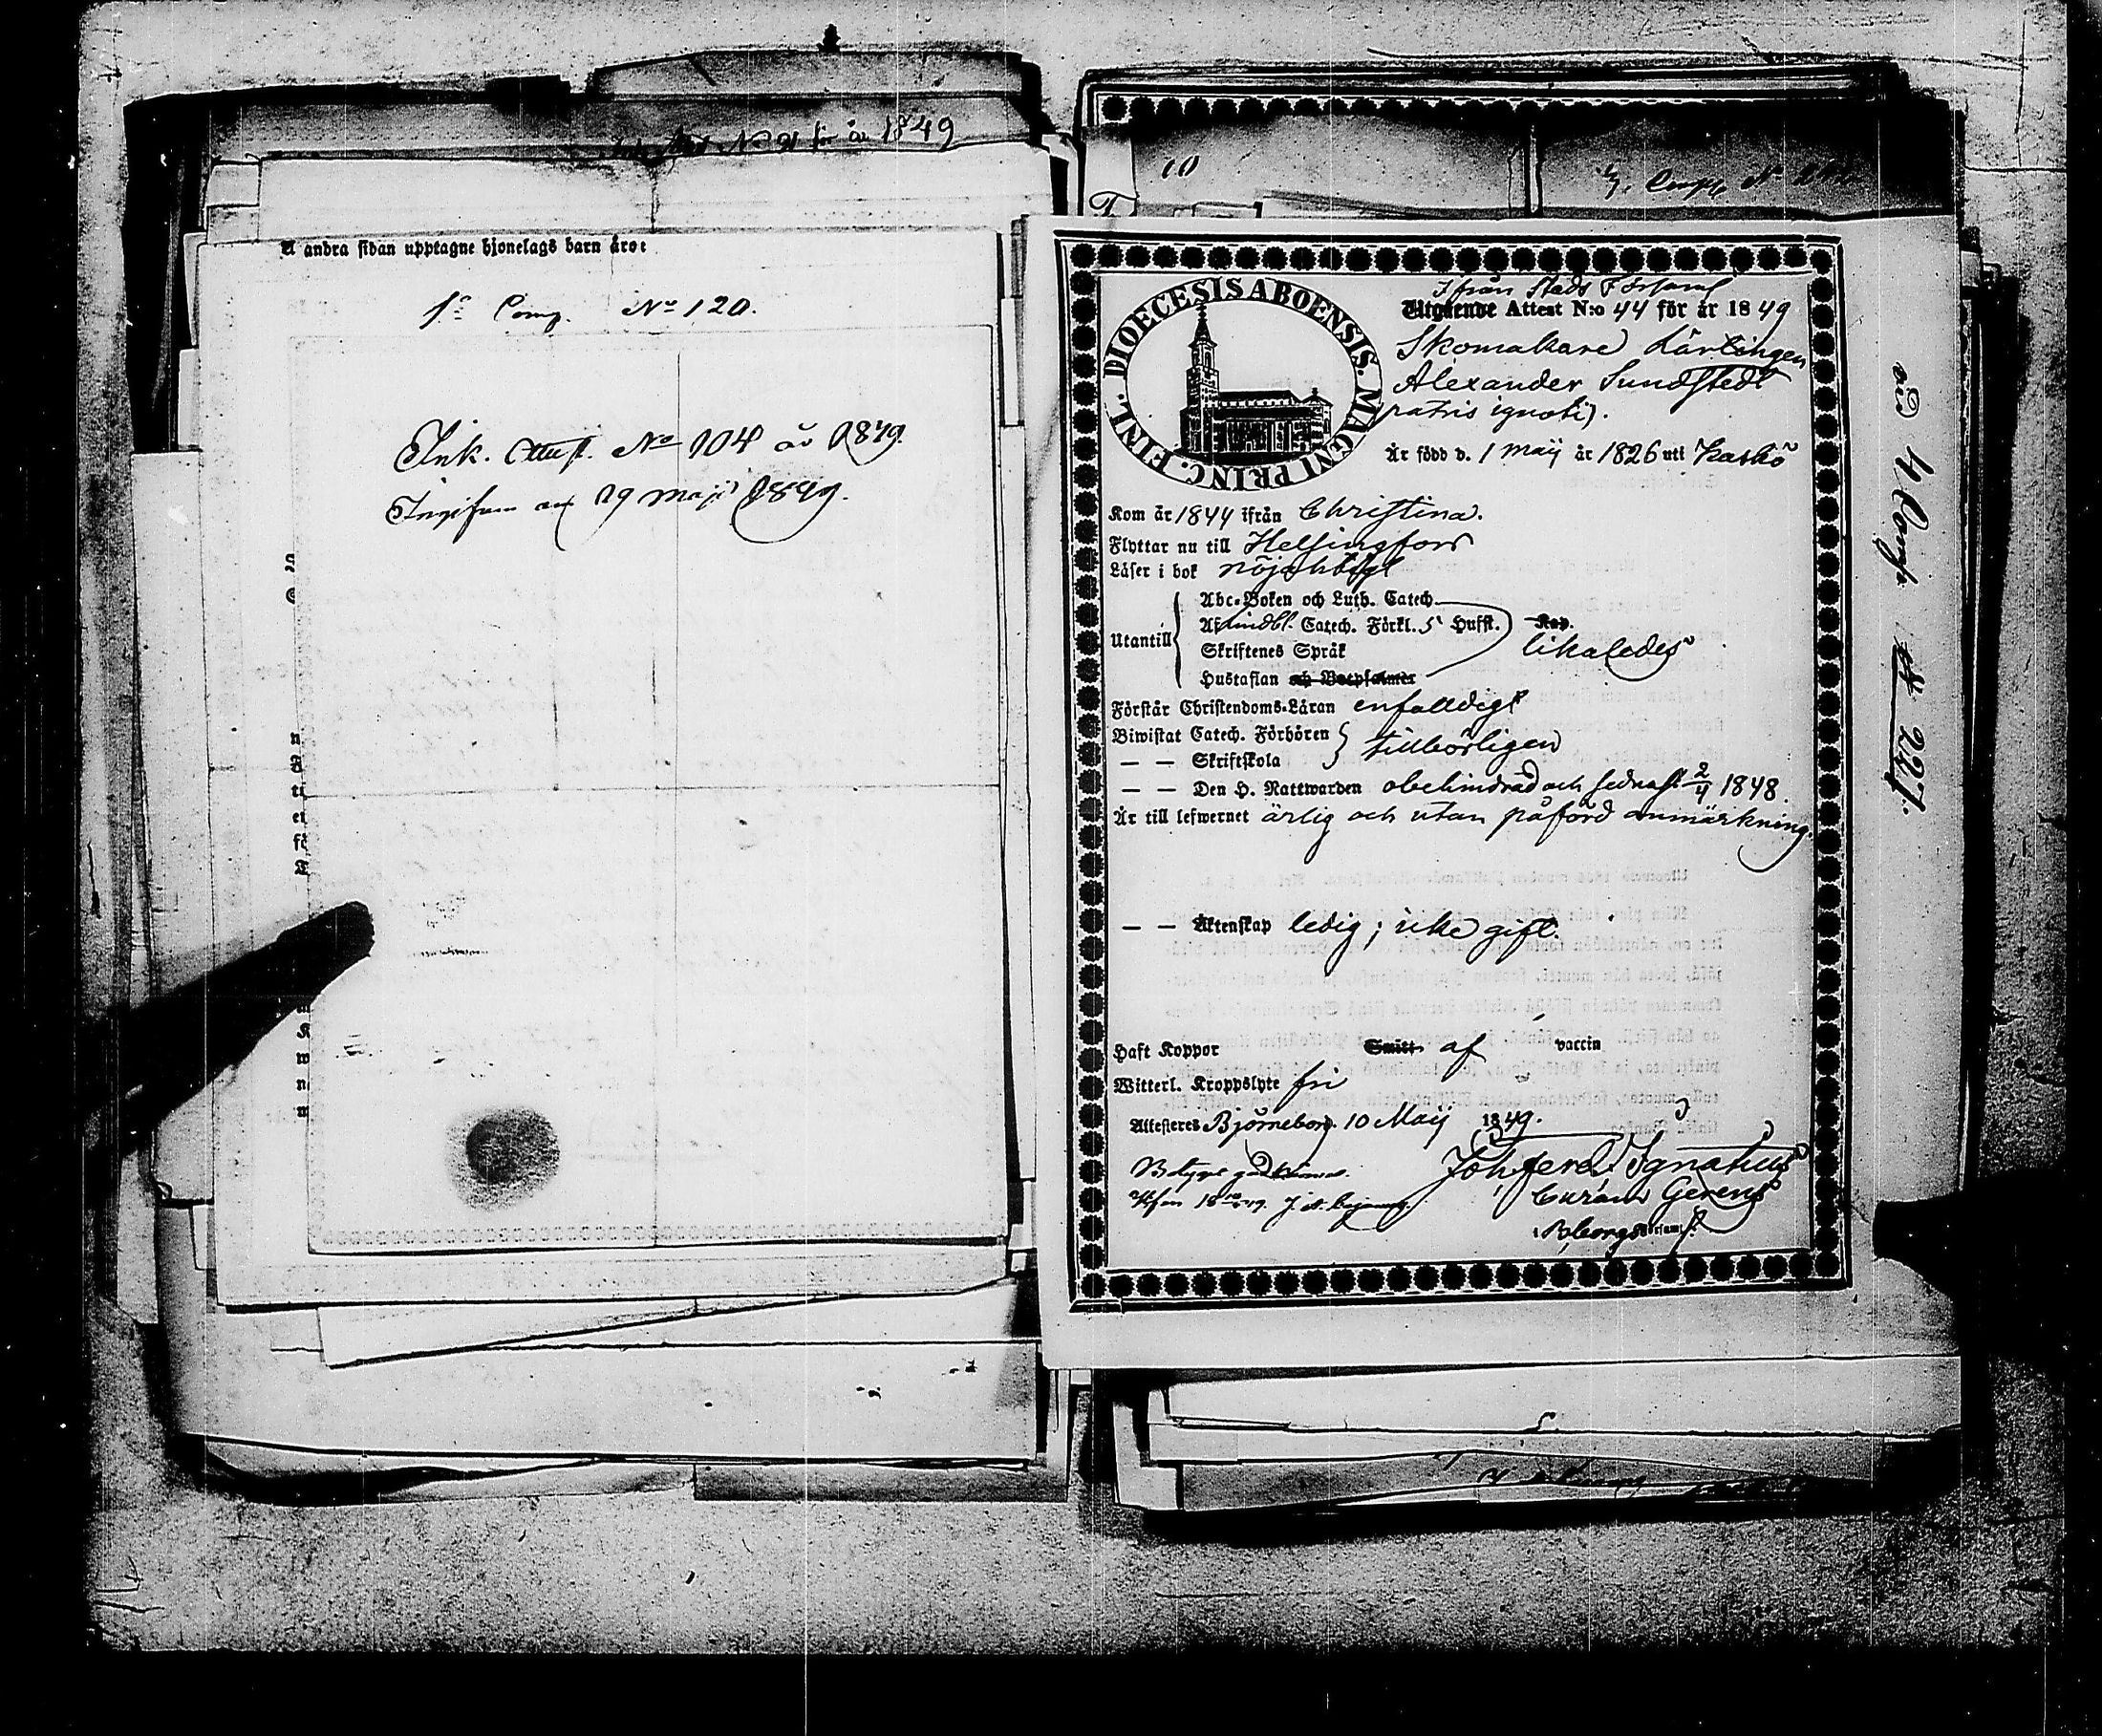 för år 1849
A andra sidan upptagne hjonelags barn äro:
1:a Comp. No 120.
Ink. Attest. No 104 år 1849.
Ingifven den 29 Maji 1849.
10
DIOECESIS ABOENSIS. MAGNI PRINC. FINL.
Ifrån Stads Församl
Utgående Attest N:o 44 för år 1849
Skomakare Lärlingen
Alexander Sundstedt
(patris ignoti).
Är född d. 1 Maij år 1826 uti Kaskö
Kom år 1844 ifrån Christina.
Flyttar nu till Helsingfors
Läser i bok nöjaktigt
Utantill
Abc-Boken och Luth. Catech.
Af Lindbl. Catech. Förkl. 5 Hufst. Kap.
likaledes
Skriftenes Språk
Hustaflan och Botpsalmer
Förstår Christendoms-Läran enfaldigt
Biwistat Catech. Förhören
tillbörligen
— — Skriftskola
— — Den H. Nattwarden obehindrad och sednast 2/4 1848.
Är till lefwernet ärlig och utan påförd anmärkning.
— — Äktenskap ledig; icke gift.
Haft Koppor Smitt af vaccin
Witterl. Kroppslyte fri
Attesteres Björneborg. 10 Maij 1849.
Joh. Ferd. Ignatius
Curam Gerens
i B,borgs Församl.
4 Comp. N 227.